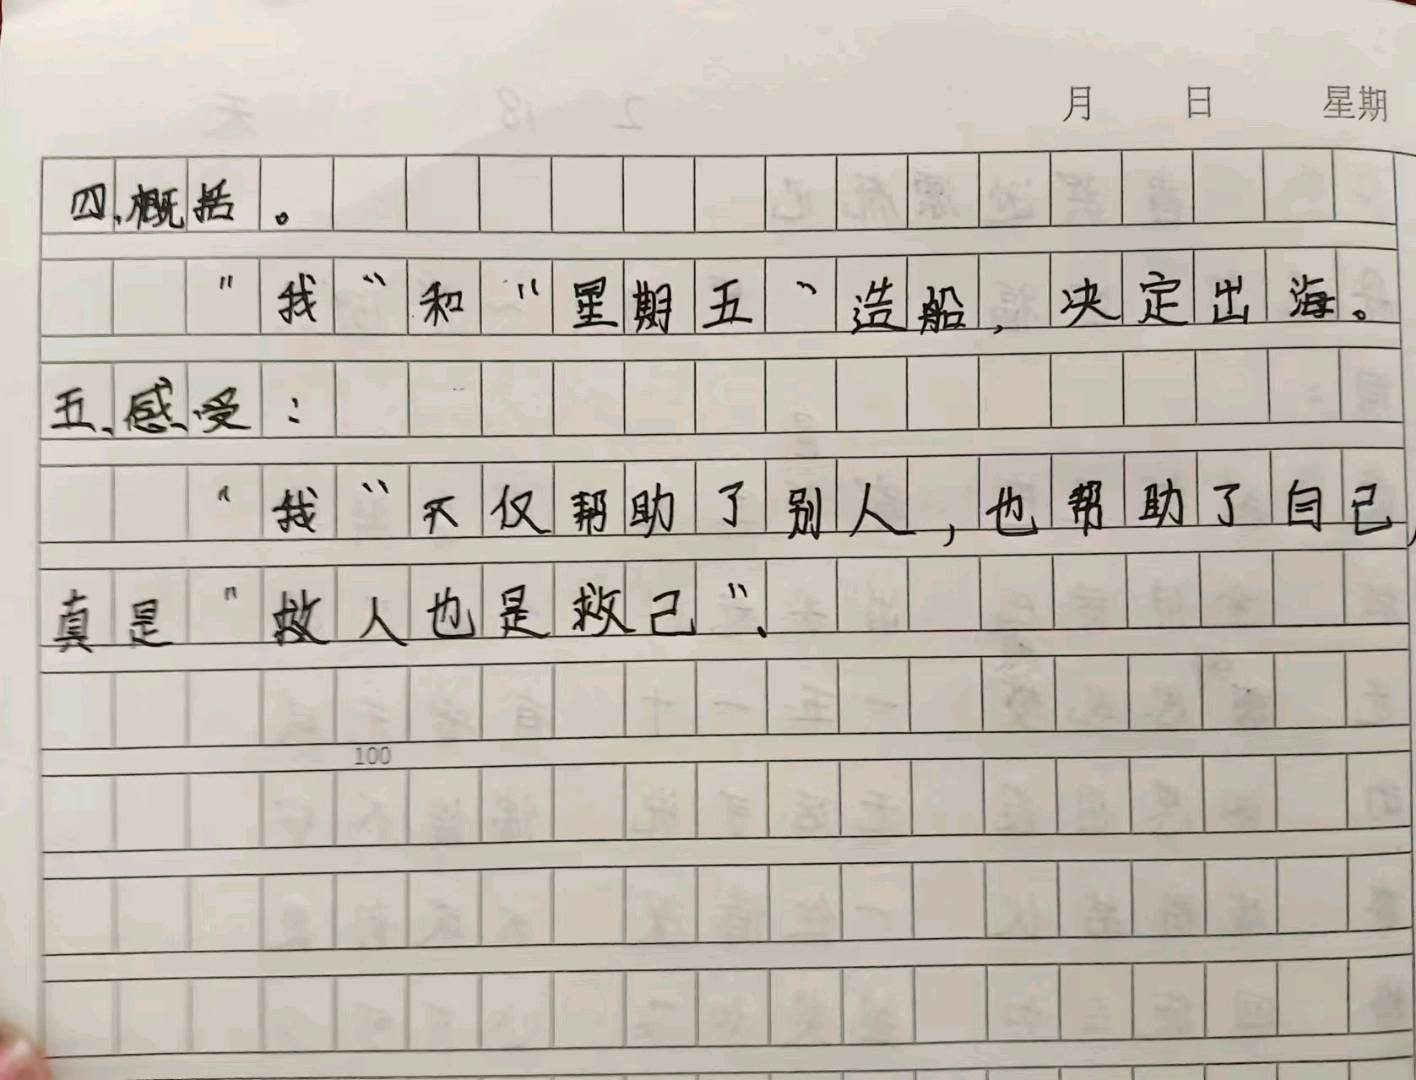 月 日 星期
四、概括。
"我"和"星期五"造船，决定出海。
五、感受：
"我"不仅帮助了别人，也帮助了自己，
真是"救人也是救己"、
100